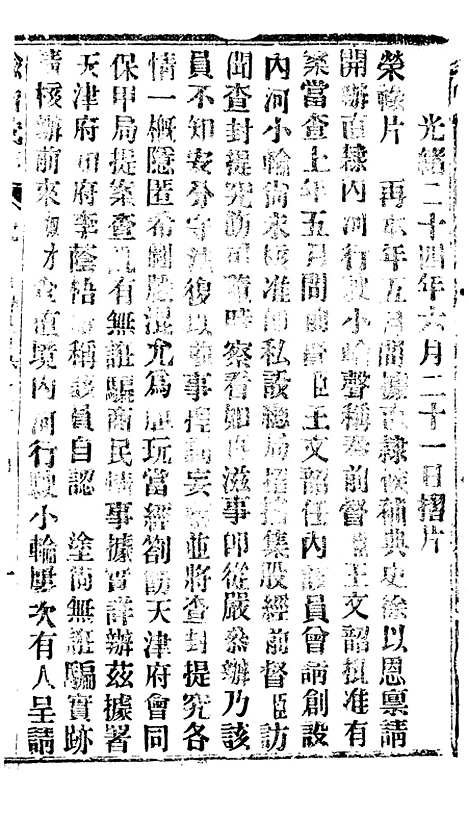 光緒二十四年六月二十一日摺片
榮祿片 再本年五月間據直隸候補典史徐以恩稟請
開辦直隸內河行駛小輪聲稱奉前督臣王文韶批准有
案當查上年五月間前督臣王文韶任內該員曾請創設
內河小輪尚未核准卽私設總局招搖集股經前督臣訪
聞查封提究飭司隨時察看如再滋事卽從嚴叅辦乃該
員不知安分守法復以前事控詞妄並將查封提究各
情一概隱匿希圖朦混尤爲膽玩當經劄飭天津府會同
保甲局提案查訊有無誆騙商民情事據實詳辦茲據署
天津府知府李蔭梧稟稱該員自認塗尚無誆騙實跡
請核辦前來奴才查直境內河行駛小輪屢次有人呈請